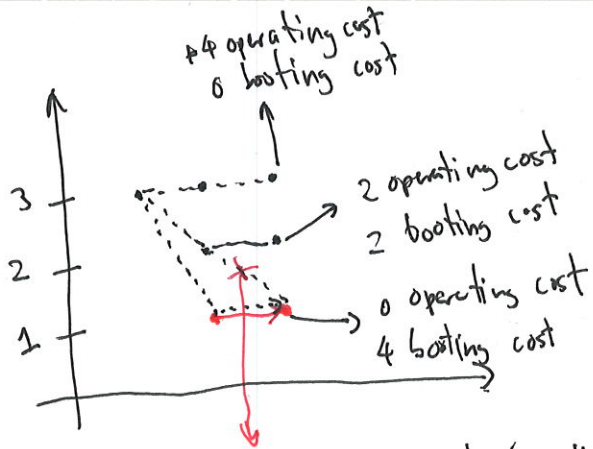 +4 operating cost
0 booting cost
3
2 operating cost
2 booting cost
2
0 operating cost
4 booting cost
1